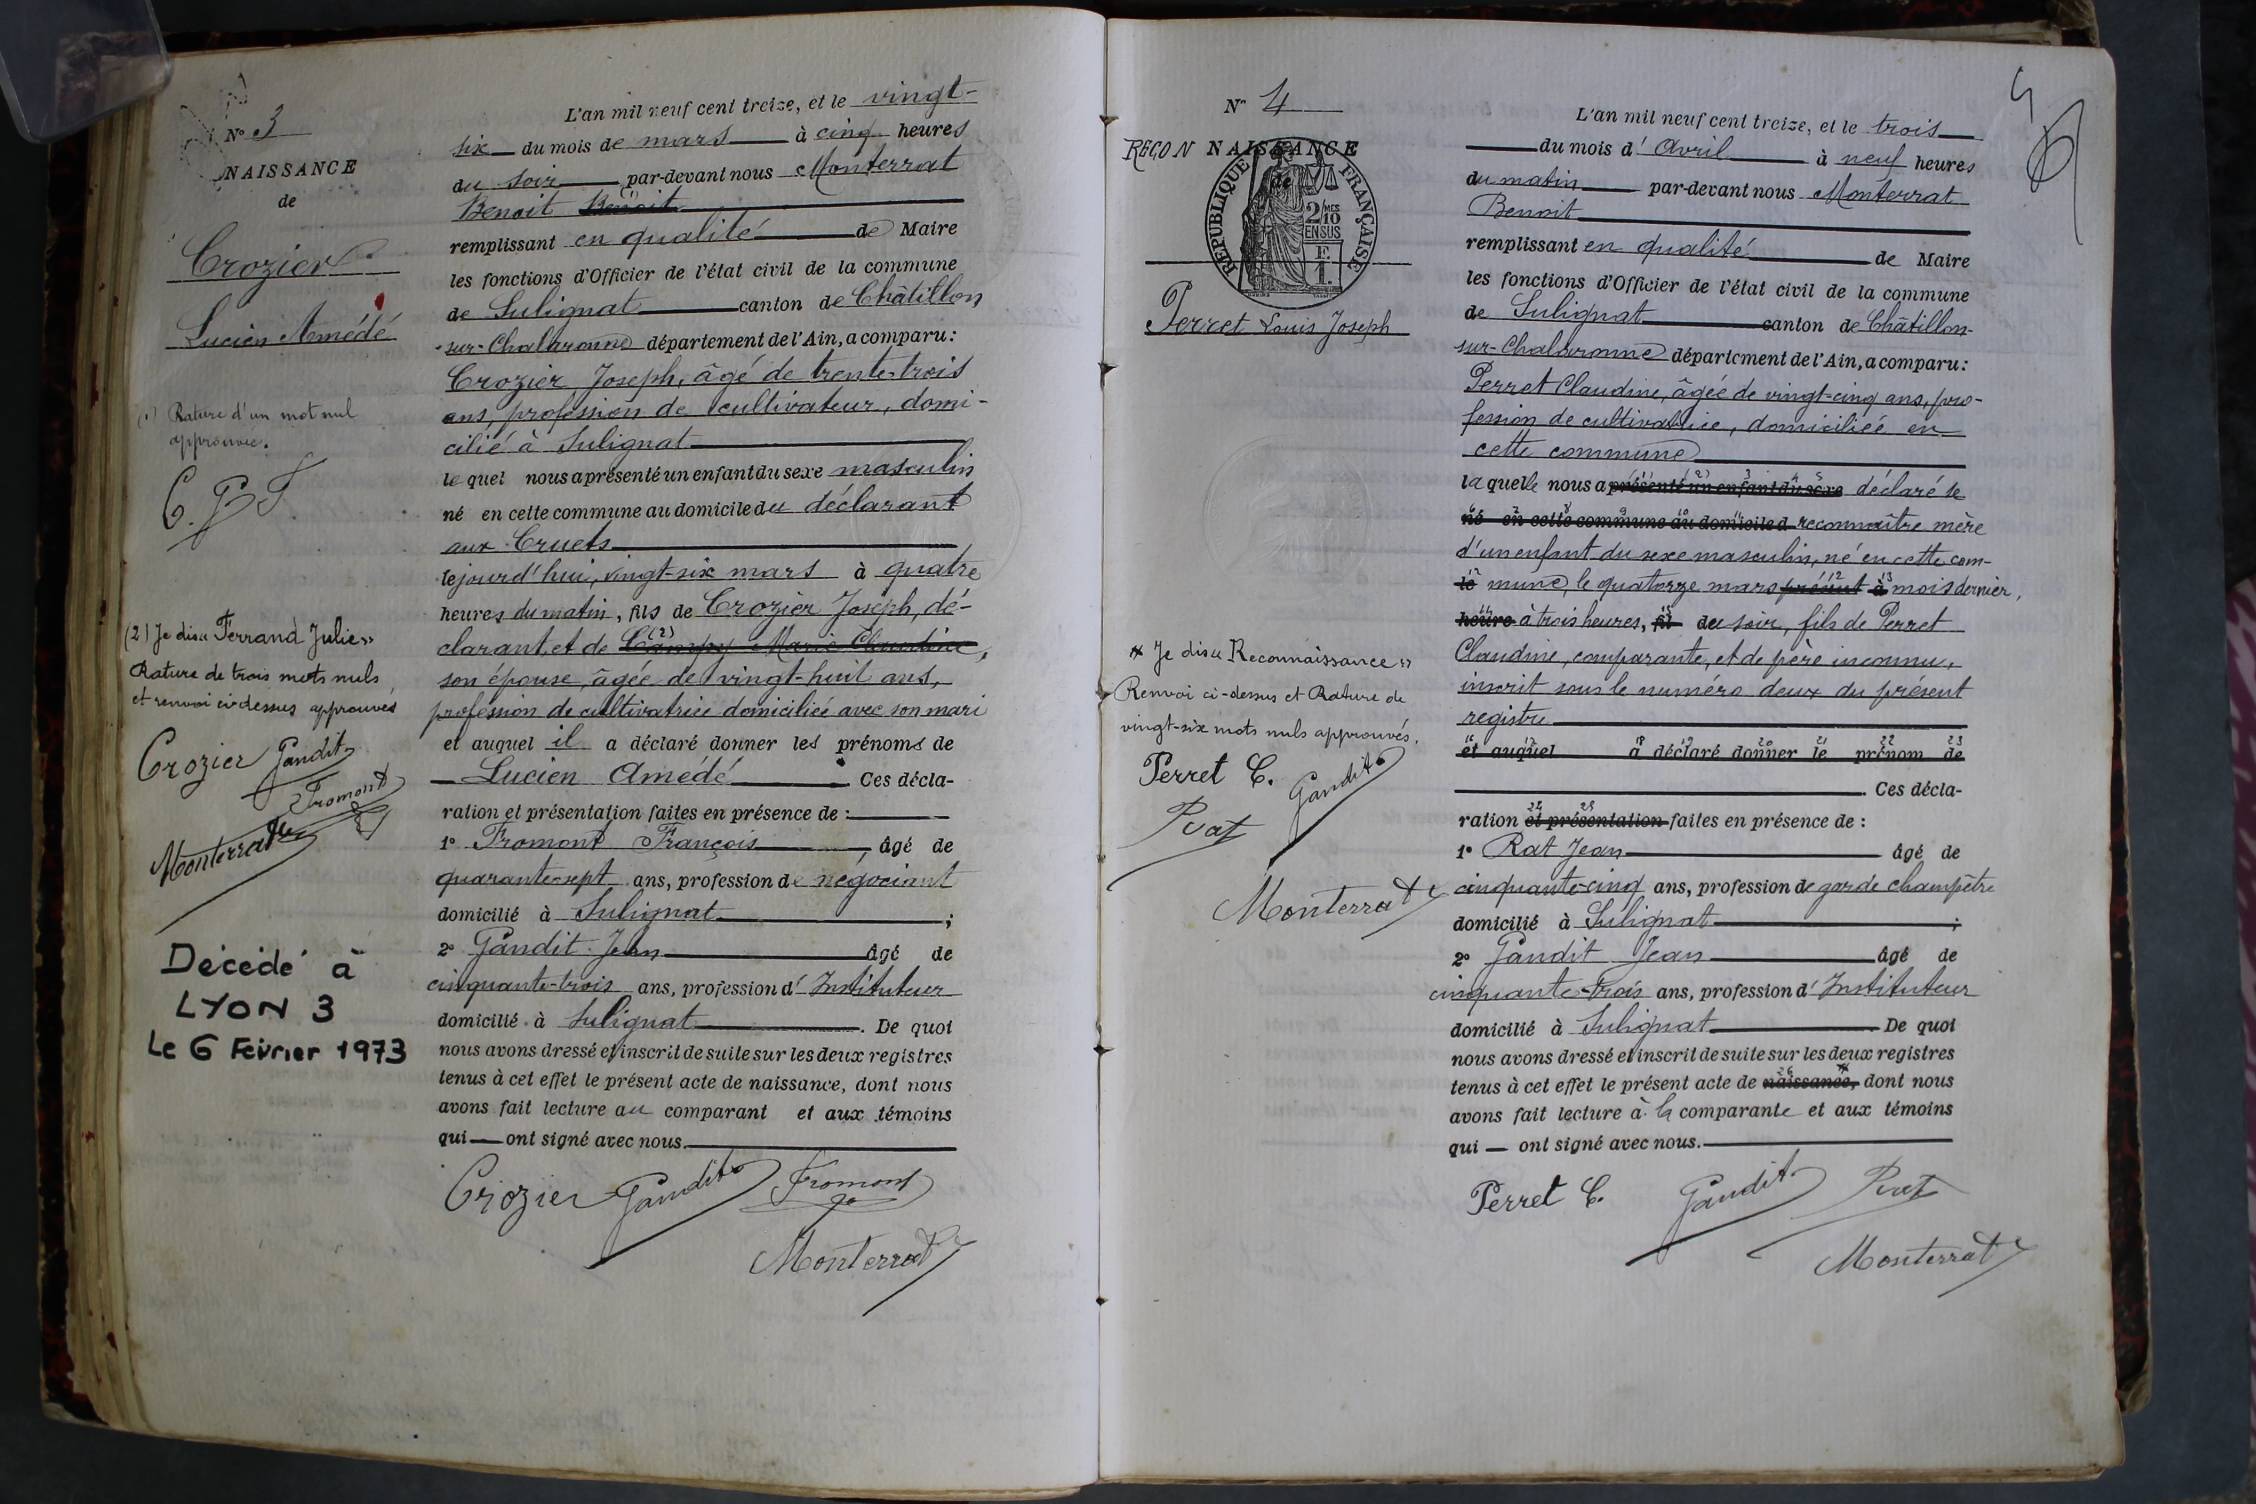 N° 3
NAISSANCE
de
Crozier
Lucien Amédé
(1) Rature d'un mot nul
approuvée.
C. G F
(2) Je dis « Ferrand Julie »
Rature de trois mots nuls
et renvoi ci-dessus approuvés
Crozier Gandit
Fromont
Monterrat
Décédé à
LYON 3
Le 6 Février 1973
L'an mil neuf cent treize, et le vingt-
six du mois de mars à cinq heures
du soir par-devant nous Monterrat
Benoit Benoit
remplissant en qualité de Maire
les fonctions d'Officier de l'état civil de la commune
de Sulignat canton de Châtillon
-sur-Chalaronne département de l'Ain, a comparu :
Crozier Joseph, âgé de trente-trois
ans, profession de cultivateur, domi-
cilié à Sulignat
le quel nous a présenté un enfant du sexe masculin
né en cette commune au domicile du déclarant
aux Cruets
le jourd'hui, vingt-six mars à quatre
heures du matin, fils de Crozier Joseph, dé-
clarant, et de (2) Marie Claudine,
son épouse, âgée de vingt-huit ans,
profession de cultivatrice domiciliée avec son mari
et auquel il a déclaré donner les prénoms de
Lucien Amédé Ces décla-
ration et présentation faites en présence de :
1° Fromont François, âgé de
quarante-sept ans, profession de négociant
domicilié à Sulignat ;
2° Gandit Jean âgé de
cinquante-trois ans, profession d'Instituteur
domicilié à Sulignat. De quoi
nous avons dressé et inscrit de suite sur les deux registres
tenus à cet effet le présent acte de naissance, dont nous
avons fait lecture au comparant et aux témoins
qui ont signé avec nous.
Crozier Gandit Fromont
Monterrat
N° 4
RECON NAISSANCE
de
RÉPUBLIQUE FRANÇAISE
2/10 MES
EN SUS
F.
1.
Perret Louis Joseph
* Je dis « Reconnaissance »
Renvoi ci-dessus et Rature de
vingt-six mots nuls approuvés.
Perret C. Gandit
Rat
Monterrat
L'an mil neuf cent treize, et le trois
du mois d'Avril à neuf heures
du matin par-devant nous Monterrat
Benoit
remplissant en qualité de Maire
les fonctions d'Officier de l'état civil de la commune
de Sulignat canton de Châtillon-
sur-Chalaronne département de l'Ain, a comparu :
Perret Claudine, âgée de vingt-cinq ans, pro-
fession de cultivatrice, domiciliée en
cette commune
la quelle nous a présenté un enfant du sexe déclaré se
né en cette commune au domicile d reconnaître mère
d'un enfant du sexe masculin, né en cette com-
le mune, le quatorze mars présent à mois dernier,
heure à trois heures, fil du soir, fils de Perret
Claudine, comparante, et de père inconnu,
inscrit sous le numéro deux du présent
registre
et auquel a déclaré donner le prénom de
. Ces décla-
ration et présentation faites en présence de :
1° Rat Jean âgé de
cinquante-cinq ans, profession de garde champêtre
domicilié à Sulignat ;
2° Gandit Jean âgé de
cinquante-trois ans, profession d'Instituteur
domicilié à Sulignat De quoi
nous avons dressé et inscrit de suite sur les deux registres
tenus à cet effet le présent acte de naissance, * dont nous
avons fait lecture à la comparante et aux témoins
qui ont signé avec nous.
Perret C. Gandit Rat
Monterrat